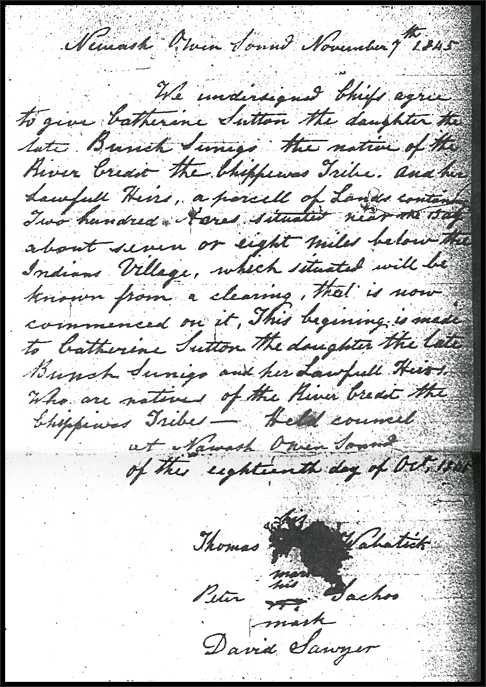 Newash Owen Sound November 7th 1845
We undersigned Chifs agree
to give Catherine Sutton the daughter the
late Bunch Sunigo the native of the
River Credet the Chippewas Tribe. and her
Lawfull Heirs, a parcell of Lands containing
Two hundred Acres situated near the Bay
about seven or eight miles below the
Indians Village, which situated will be
known from a clearing, that is now
commenced on it, This begining is made
to Catherine Sutton the daughter the late
Bunch Sunigo and her Lawfull Heirs.
Who are natives of the River Credet the
Chippiwas Tribes — Held counsel
at Nawash Owen Sound
of this eighteenth day of Oct.
his
Thomas Wabatick
mark
his
Peter Sachoo
mark
David Sawyer